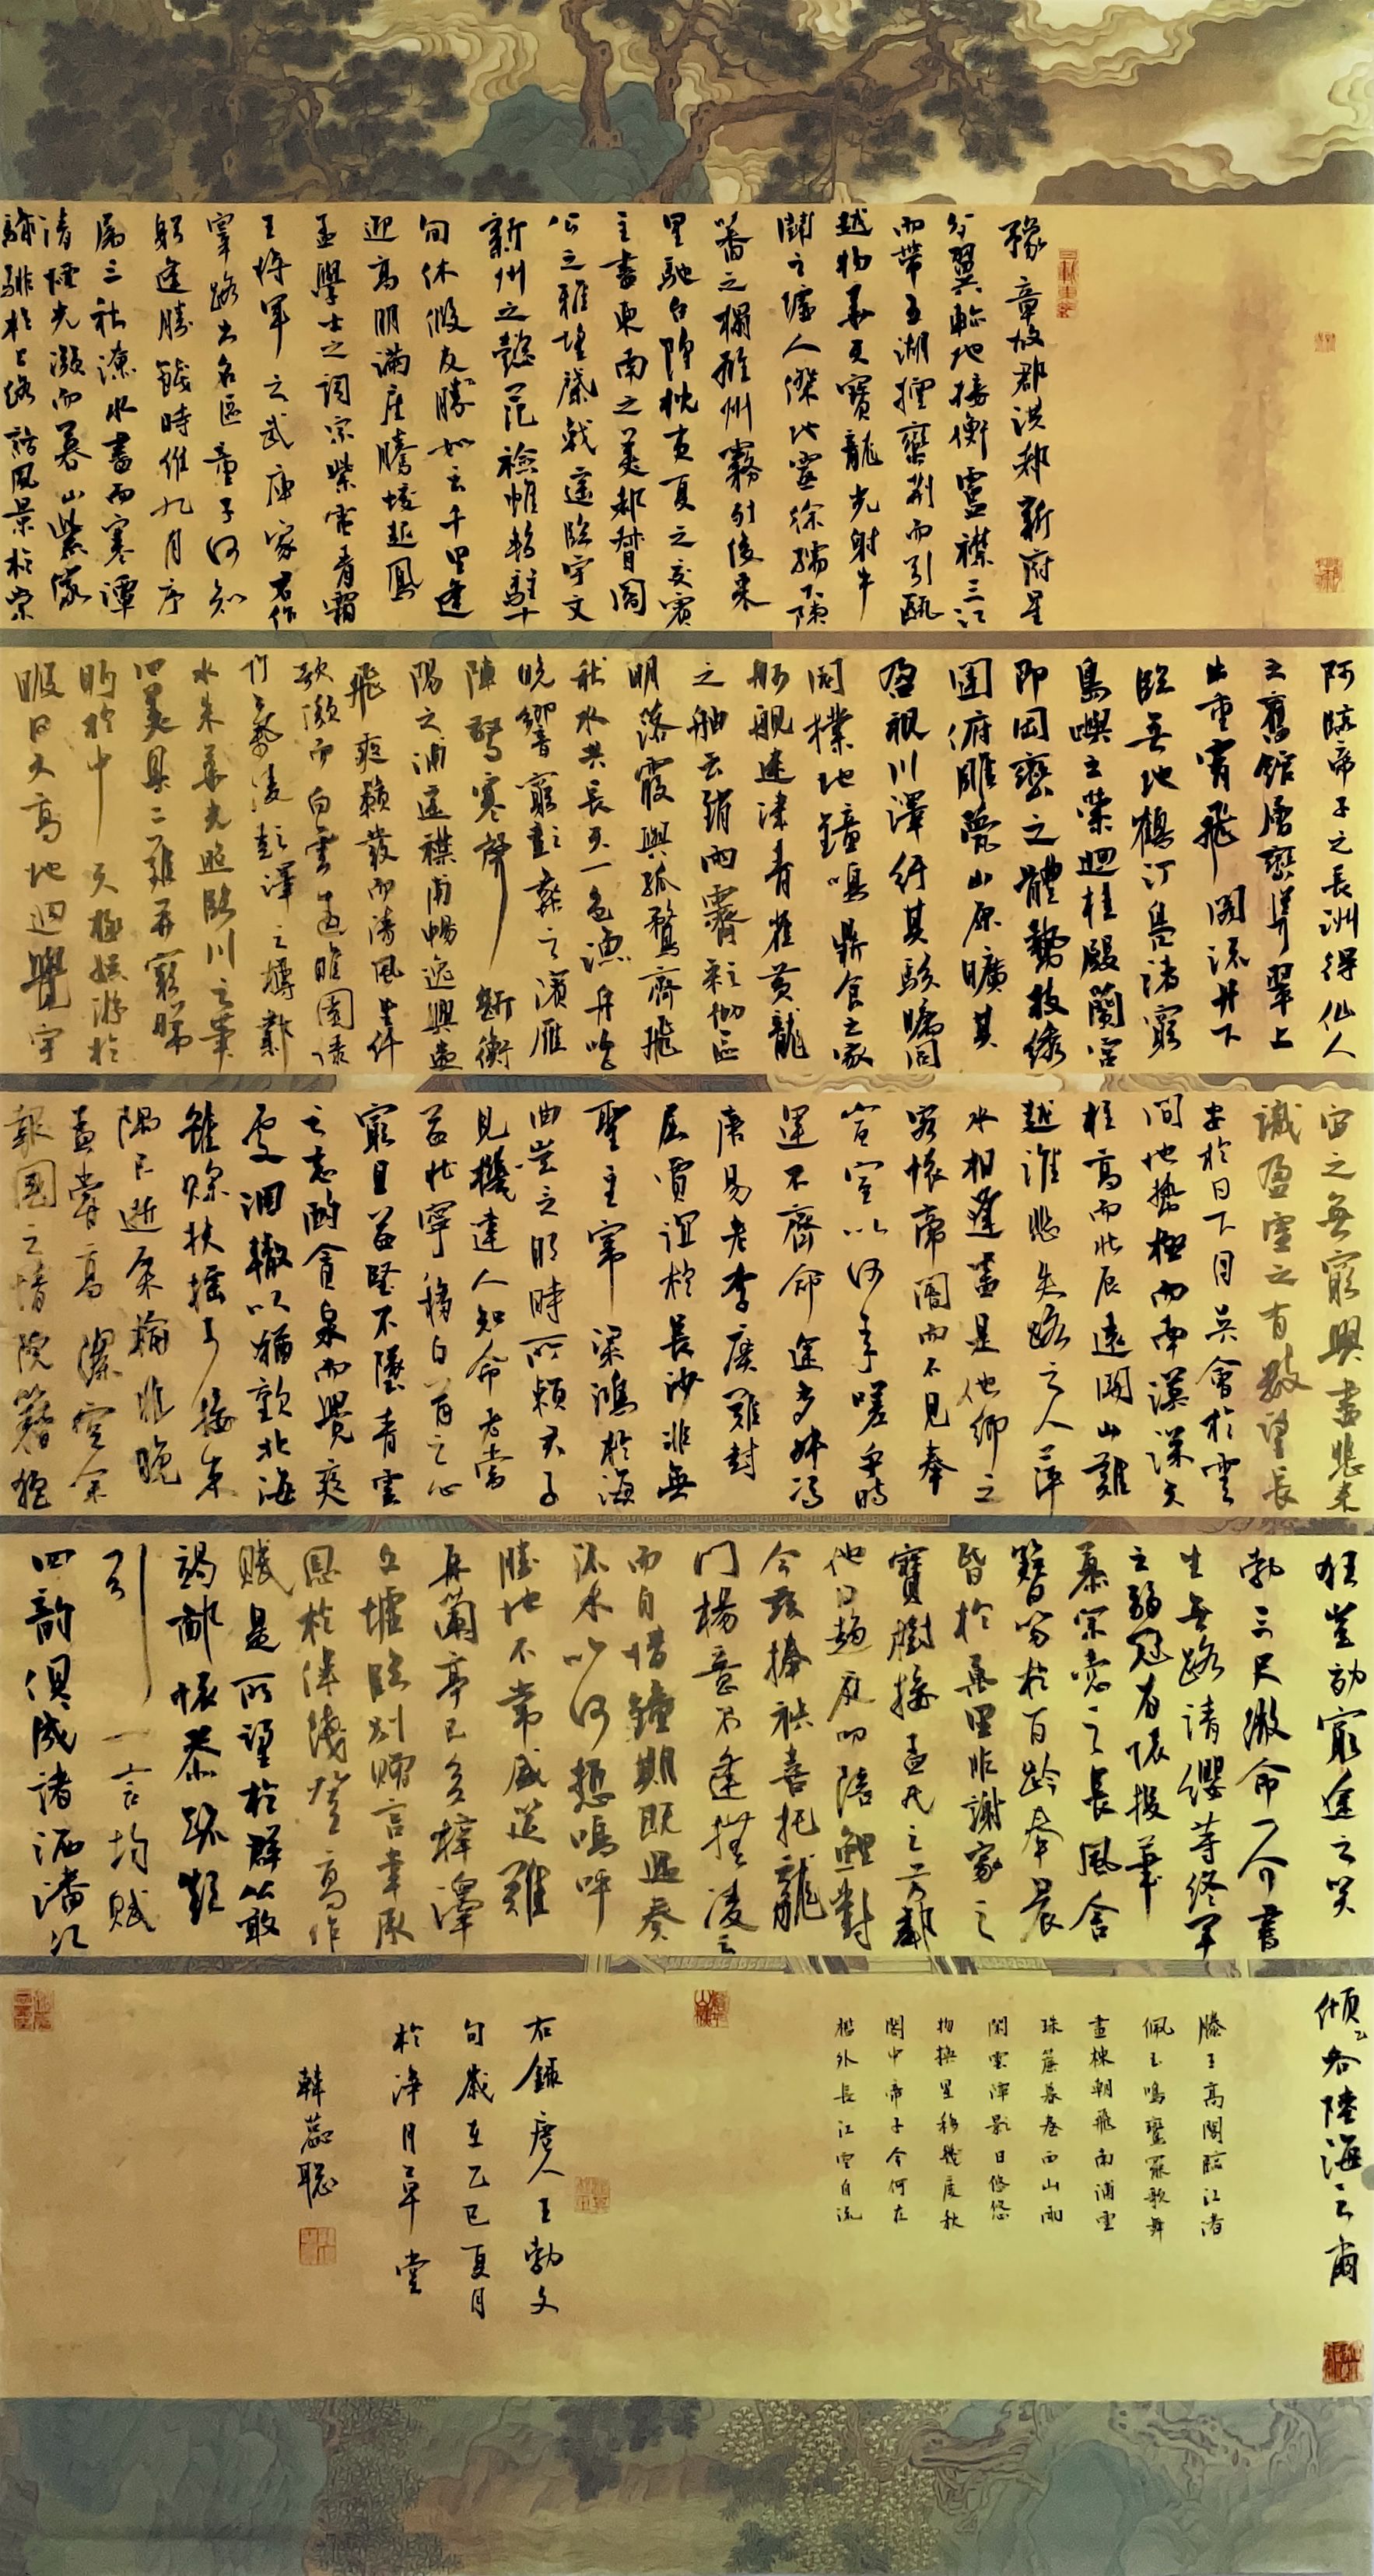 豫章故郡洪都新府星
分翼軫地接衡廬襟三江
而帶五湖控蠻荆而引甌
越物華天寶龍光射牛
鬪之墟人傑地靈徐孺下陳
蕃之榻雄州霧列俊采
星馳台隍枕夷夏之交賓
主盡東南之美都督閻
公之雅望棨戟遥臨宇文
新州之懿范襜帷暫駐十
旬休假友勝如云千里逢
迎高朋滿座騰蛟起鳳
孟學士之詞宗紫電青霜
王將軍之武庫家君作
宰路出名區童子何知
躬逢勝餞時維九月序
屬三秋潦水盡而寒潭
清煙光凝而暮山紫儼
驂騑於上路訪風景於崇
阿臨帝子之長洲得仙人
之舊館層巒聳翠上
出重霄飛閣流丹下
臨無地鶴汀凫渚窮
島嶼之縈迴桂殿蘭宫
即岡巒之體勢披綉
闥俯雕甍山原曠其
盈視川澤紆其駭矚閭
閻撲地鐘鳴鼎食之家
舸艦迷津青雀黄龍
之舳云銷雨霽彩徹區
明落霞與孤鶩齊飛
秋水共長天一色漁舟唱
晚響窮彭蠡之濱雁
陣驚寒聲斷衡
陽之浦遥襟甫暢逸興遄
飛爽籟發而清風生纤
歌凝而白雲遏睢園绿
竹氣凌彭澤之樽鄴
水朱華光照臨川之筆
四美具二難并窮睇
眄於中天極娱游於
暇日天高地迥覺宇
宙之無窮興盡悲來
識盈虚之有數望長
安於日下目吴會於雲
間地勢極而南溟深天
柱高而北辰遠關山難
越誰悲失路之人萍
水相逢盡是他鄉之
客懷帝閽而不見奉
宣室以何年嗟乎時
運不齊命途多舛馮
唐易老李廣難封
屈賈誼於長沙非無
聖主竄梁鴻於海
曲豈乏明時所賴君子
見機達人知命老當
益壯寧移白首之心
窮且益堅不墜青雲
之志酌貪泉而覺爽
處涸轍以猶歡北海
雖賒扶摇可接東
隅已逝桑榆非晚
孟嘗高潔空余
報國之情阮籍猖
狂豈効窮途之哭
勃三尺微命一介書
生無路請纓等終軍
之弱冠有懷投筆
慕宗慤之長風舍
簪笏於百齡奉晨
昏於萬里非謝家之
寶樹接孟氏之芳鄰
他日趨庭叨陪鯉對
今兹捧袂喜托龍
門楊意不逢撫凌云
而自惜鐘期既遇奏
流水以何慚嗚呼
勝地不常盛筵難
再蘭亭已矣梓澤
丘墟臨别贈言幸承
恩於偉餞登高作
賦是所望於群公敢
竭鄙懷恭疏短
引一言均賦
四韵俱成請洒潘江
傾各陸海云爾
滕王高閣臨江渚
佩玉鳴鸞罷歌舞
畫棟朝飛南浦雲
珠簾暮卷西山雨
閑雲潭影日悠悠
物换星移幾度秋
閣中帝子今何在
檻外長江空自流
右録唐人王勃文
句歲在乙巳夏月
於净月草堂
韓蕊聪